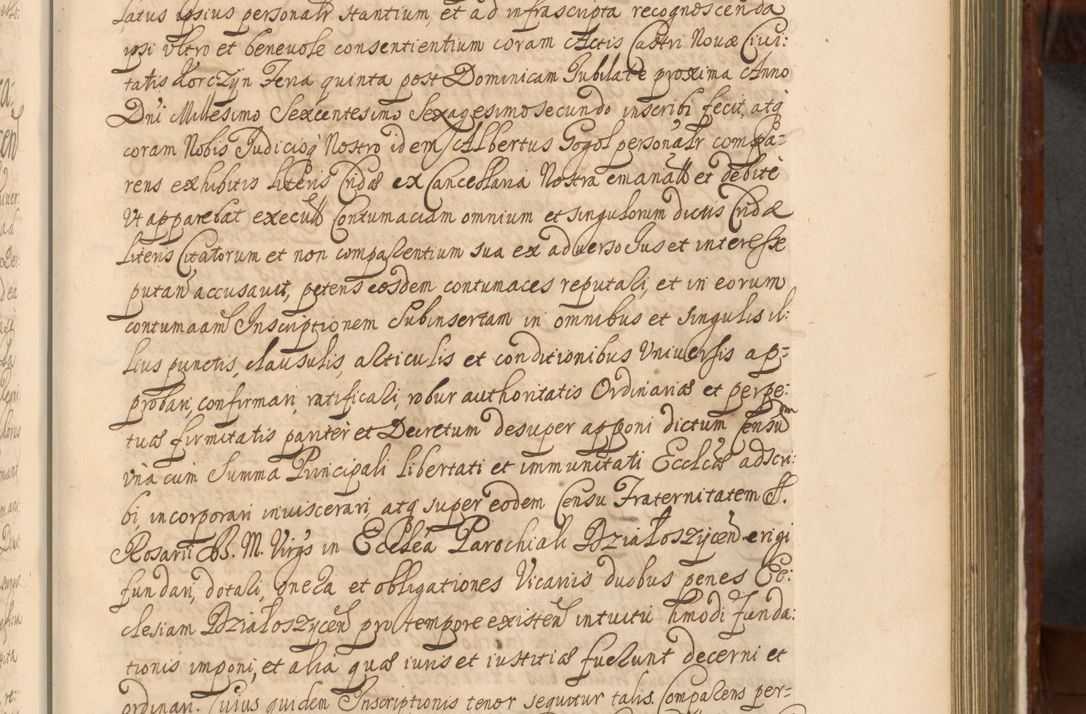 latus ipsius personalr stantium, et ad infrascripta recognoscenda
ipsi vltro et benevole consentientium coram Actis Castri Novæ Civi:
tatis Korczÿn Feria quinta post Dominicam Jubilate proxima Anno
Dni Millesimo Sexcentesimo Sexagesimo secundo inscribi fecit, atq
coram Nobis Judicioq Nostro idem Albertus Gogol personalr compa:
rens exhibitis literis Cridæ ex Cancellaria Nostra emanat et debite
Vt apparebat execut Contumaciam omnium et singulorum dictis Cridæ
literis Citatorum et non comparentium sua ex adverso Jus et interesse
putan accusavit, petens eosdem contumaces reputari, et in eorum
contumaciam Inscriptionem Subinsertam in omnibus et singulis il:
lius punctis, clausulis, articulis et conditionibus Vniversis ap:
probari, confirmari, ratificari, robur authoritatis Ordinariæ et perpe:
tuæ firmitatis pariter et Decretum desuper apponi dictum Censum
vna cum Summa Principali libertati et immunitati Ecclæ adscri:
bi, incorporari inviscerari, atq super eodem Censu Fraternitatem S.
Rosarii B. M. Virgs in Ecclea Parochiali Działoszÿcen erigi
fundari, dotari, onera et obligationes Vicariis duobus penes Ec:
clesiam Działoszÿcen pro tempore existen intuitu hmodi funda:
tionis imponi, et alia quæ iuris et iustitiæ fuerunt decerni et
ordinari. Cuius quidem Inscriptionis tenor sequitur talis. Comparens per: